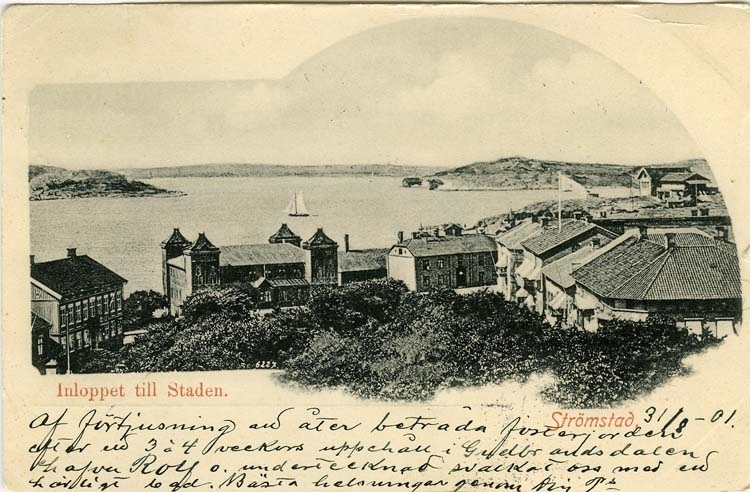 6227
Inloppet till Staden.
Strömstad 31/8-01.
Af förtjusning att åter beträda fosterjorden
efter ett 3 à 4 veckors uppehåll i Gudbrandsdalen
hafva Rolf o. undertecknad svalkat oss med ett
härligt bad. Bästa helsningar genom Din